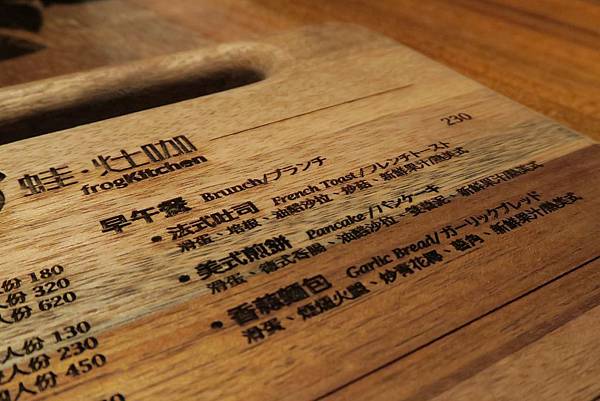 蛙·灶咖
frogKitchen
早午餐 Brunch/ブランチ 230
• 法式吐司 French Toast/フレンチトースト
滑蛋、培根、油醋沙拉、炒菇、新鮮果汁或美式
• 美式煎餅 Pancake/パンケーキ
滑蛋、德式香腸、油醋沙拉、新鮮果汁或美式
• 香蒜麵包 Garlic Bread/ガーリックブレッド
滑蛋、煙燻火腿、炒青花椰、新鮮果汁或美式
人份 180
人份 320
人份 620
人份 130
人份 230
人份 450